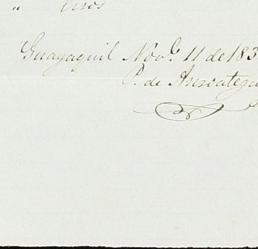 " Unos
Guayaquil Nov.e 11 de 183
P. de Ansoategui